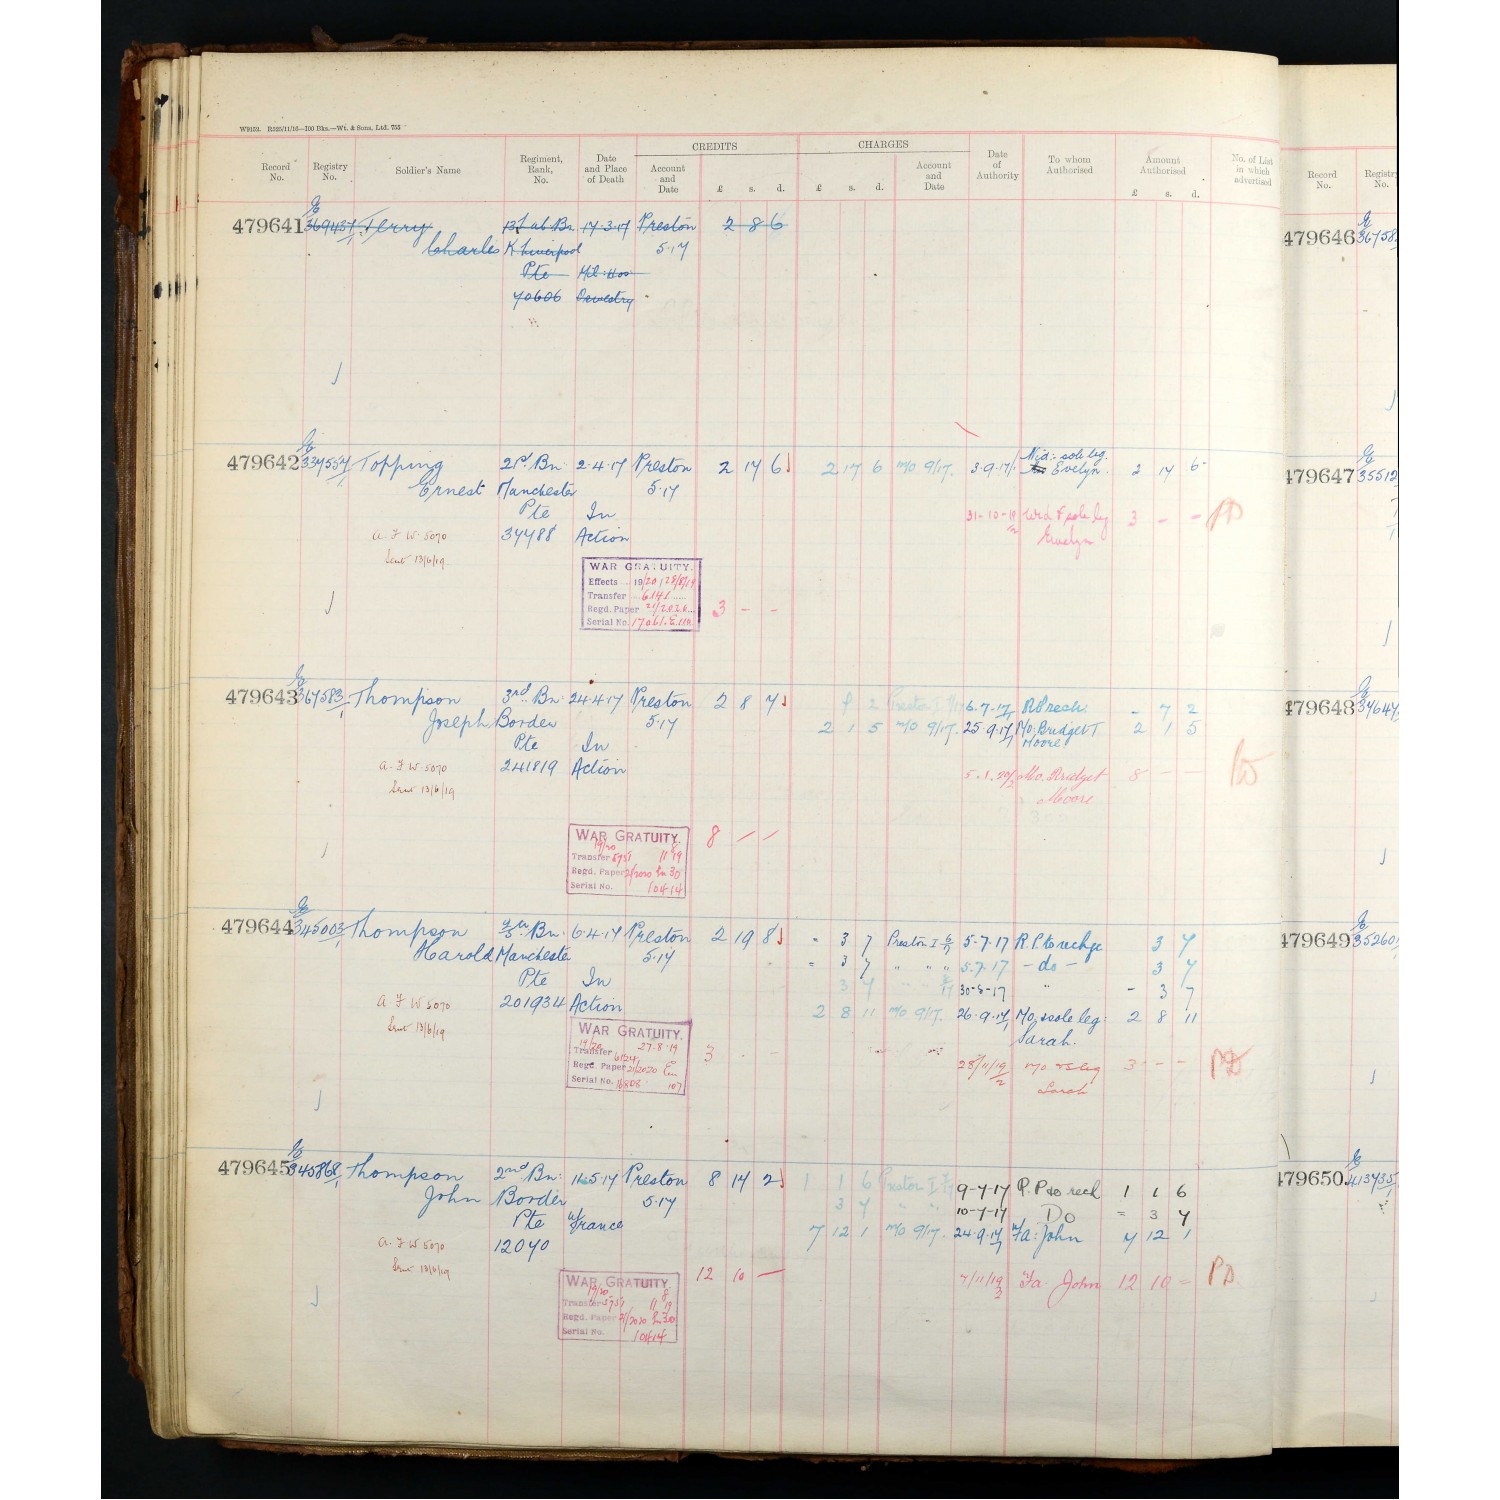 W9152. R323/11/16—100 Bks.—Wt. & Sons, Ltd. 755
CREDITS CHARGES
Record No. Registry No. Soldier's Name Regiment, Rank, No. Date and Place of Death Account and Date £ s. d. £ s. d. Account and Date Date of Authority To whom Authorised Amount Authorised £ s. d. No. of List in which advertised Record No. Registry No.
479641 E 369437/1 Terry 13 Lab Bn 17.3.17 Preston 2 8 6
Charles K Liverpool 5.17
Pte Mil: Hos
70606 Oswestry
479642 E 334554/1 Topping 21st Bn. 2.4.17 Preston 2 17 6 2 17 6 M/O 9/17. 3.9.17/1 Wid: sole leg. Evelyn. 2 17 6
Ernest Manchester 5.17
Pte In 31-10-19/2 Wid & sole leg 3 - - PD
A. F W 5070 37488 Action Evelyn
Sent 13/6/19
WAR GRATUITY.
Effects 19/20 / 28/8/19
Transfer 6141
Regd. Paper 21/2020 3 - -
Serial No. 17061.E.110
479643 E 367583/1 Thompson 3rd Bn. 24.4.17 Preston 2 8 7 7 2 Preston 6.7.17 RP rech. - 7 2
Joseph Border 5.17 2 1 5 M/O 9/17. 25.9.17/1 Mo: Bridget T 2 1 5
Pte In Moore
A. F W. 5070 241819 Action 5.1.20/2 Mo. Bridget 8 - -
Sent 13/6/19 Moore
WAR GRATUITY. 8 - -
19/20
Transfer 5951 11 8 19
Regd. Paper 21/2020 En 30
Serial No. 10414
479644 E 345003/1 Thompson 2/5th Bn. 6.4.17 Preston 2 19 8 - 3 7 Preston I 6/17 5.7.17 R.P. to rechge 3 7
Harold Manchester 5.17 - 3 7 " " " 5.7.17 - do - 3 7
Pte In 3 7 30-8-17 " - 3 7
A F W 5070 201934 Action 2 8 11 M/O 9/17. 26.9.17/1 Mo: sole leg: 2 8 11
Sent 13/6/19 Sarah.
WAR GRATUITY. 3 - -
19/20 27.8.19 28/11/19/2 Mo & s leg 3 - - PD
Transfer 6124 Sarah
Regd. Paper 21/2020 En
Serial No. 16808 107
479645 E 345868/1 Thompson 2nd Bn: 5.17 Preston 8 17 2 1 1 6 Preston I 9-7-17 R.P to rech 1 1 6
John Border 5.17 3 7 " " 10-7-17 Do = 3 7
Pte w/ France 7 12 1 M/O 9/17. 24.9.17/1 Fa: John 7 12 1
A. F W 5070 12070
Sent 13/6/19 12 10 - 7/11/19/2 Fa. John 12 10 - PD
WAR GRATUITY.
19/20 8
Transfer 5951 11 19
Regd. Paper 21/2020 En 30
Serial No. 10414
479646
479647
479648
479649
479650